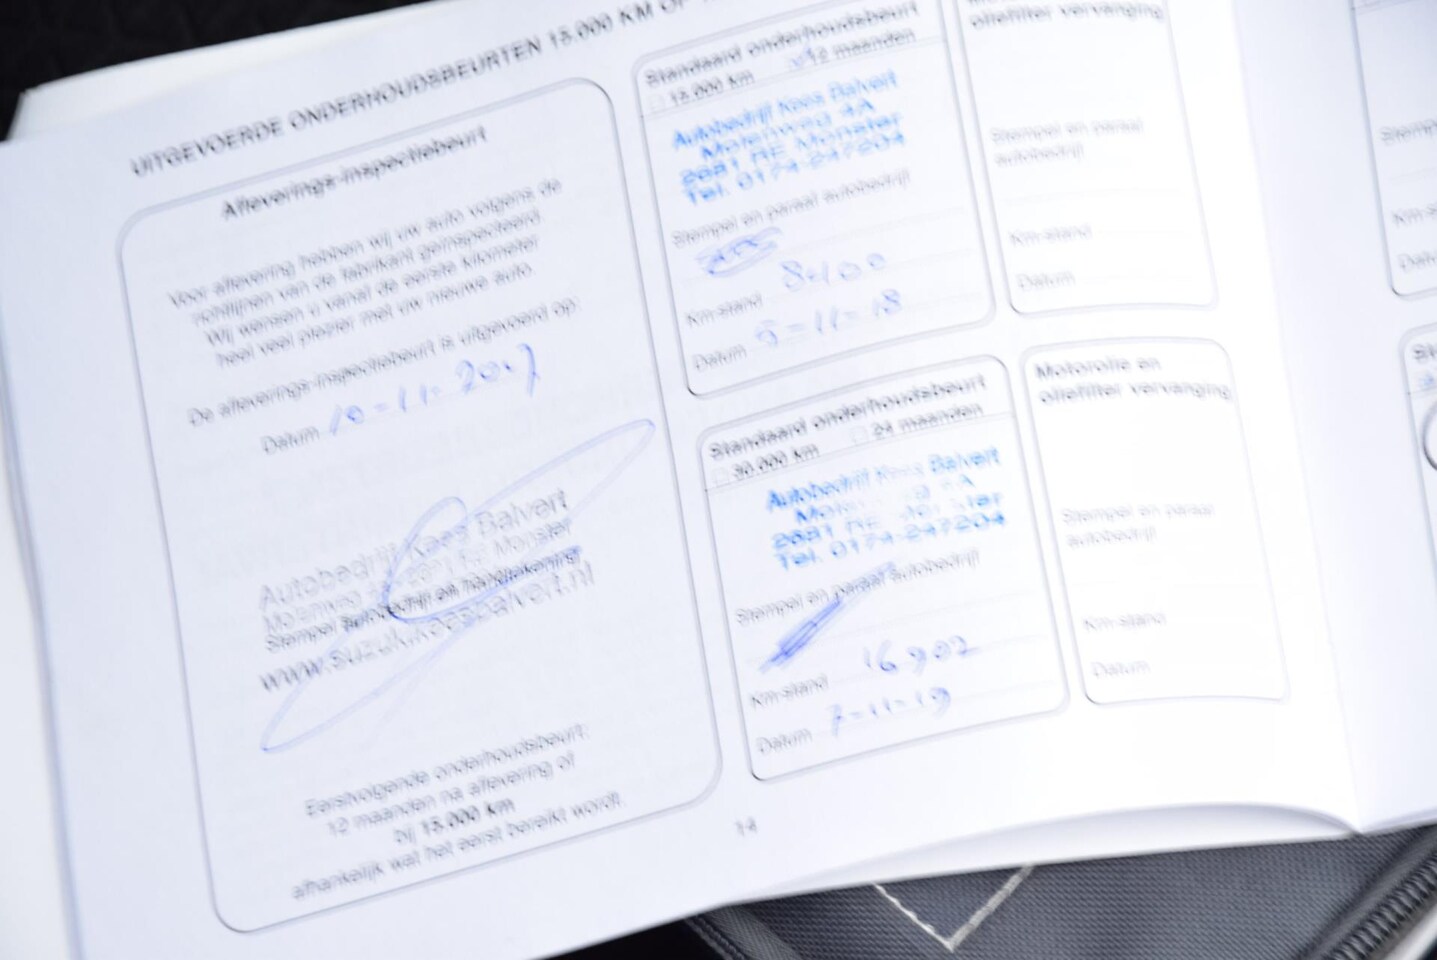 UITGEVOERDE ONDERHOUDSBEURTEN 15.000 KM OF
Afleverings-inspectiebeurt
Voor aflevering hebben wij uw auto volgens de
richtlijnen van de fabrikant geïnspecteerd
Wij wensen u vanaf de eerste kilometer
heel veel plezier met uw nieuwe auto.
De afleverings-inspectiebeurt is uitgevoerd op:
Datum 10-11-2017
Autobedrijf Kees Balvert
Molenweg Monster
Stempel autobedrijf en handtekening
www.suzukikeesbalvert.nl
Eerstvolgende onderhoudsbeurt:
12 maanden na aflevering of
bij 15.000 km
afhankelijk wat het eerst bereikt wordt.
Standaard onderhoudsbeurt
15.000 km 12 maanden
Autobedrijf Kees Balvert
Molenweg 4A
2681 RE Monster
Tel. 0174-247204
Stempel en paraaf autobedrijf
Km-stand 8400
Datum 5-11-18
Standaard onderhoudsbeurt
30.000 km 24 maanden
Autobedrijf Kees Balvert
2681 RE
Tel. 0174-247204
Stempel en paraaf autobedrijf
Km-stand 16902
Datum 7-11-19
oliefilter vervanging
Stempel en paraaf
autobedrijf
Km-stand
Datum
Motorolie en
oliefilter vervanging
Stempel en paraaf
autobedrijf
Km-stand
Datum
14